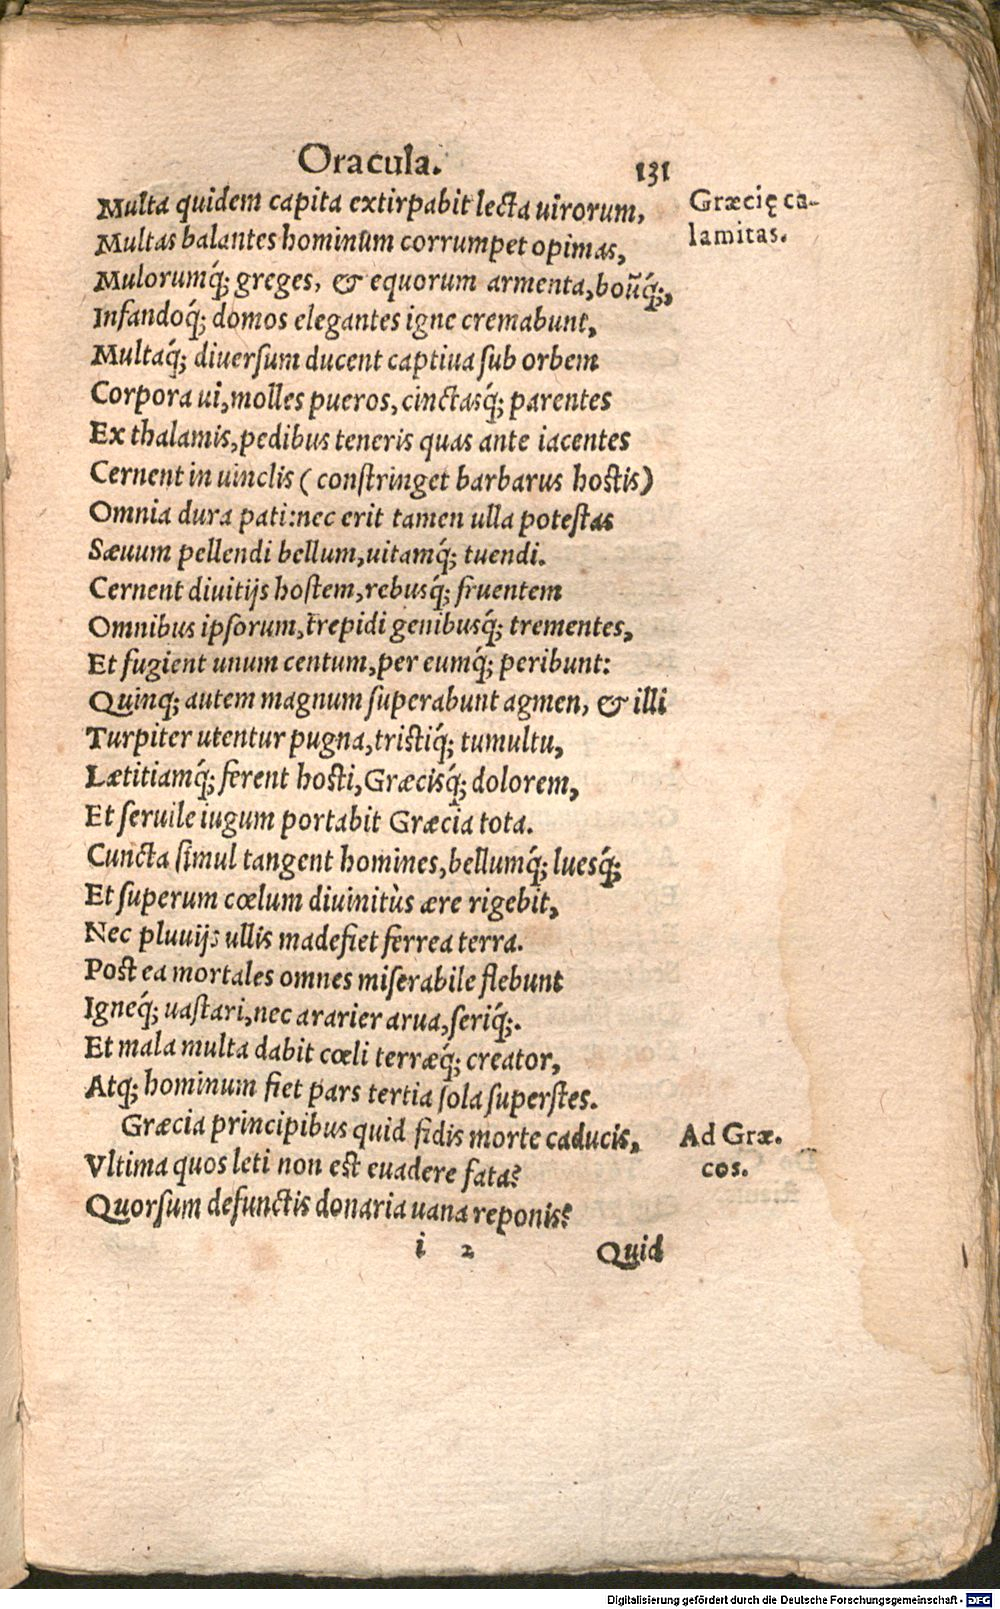 Oracula. 131
Multa quidem capita extirpabit lecta uirorum,
Græcię ca-
lamitas.
Multas balantes hominum corrumpet opimas,
Mulorumq́; greges, & equorum armenta, boūq́;,
Infandoq́; domos elegantes igne cremabunt,
Multaq́; diuersum ducent captiua sub orbem
Corpora ui, molles pueros, cinctasq́; parentes
Ex thalamis, pedibus teneris quas ante iacentes
Cernent in uinclis ( constringet barbarus hostis)
Omnia dura pati: nec erit tamen ulla potestas
Sæuum pellendi bellum, uitamq́; tuendi.
Cernent diuitijs hostem, rebusq́; fruentem
Omnibus ipsorum, trepidi genibusq́; trementes,
Et fugient unum centum, per eumq́; peribunt:
Quinq; autem magnum superabunt agmen, & illi
Turpiter utentur pugna, tristiq́; tumultu,
Lætitiamq́; ferent hosti, Græcisq́; dolorem,
Et seruile iugum portabit Græcia tota.
Cuncta simul tangent homines, bellumq́; luesq́;
Et superum cœlum diuinitùs ære rigebit,
Nec pluuijs ullis madefiet ferrea terra.
Post ea mortales omnes miserabile flebunt
Igneq́; uastari, nec ararier arua, seriq́;.
Et mala multa dabit cœli terræq́; creator,
Atq; hominum fiet pars tertia sola superstes.
Græcia principibus quid fidis morte caducis,
Ad Græ.
cos.
Vltima quos leti non est euadere fata?
Quorsum defunctis donaria uana reponis?
i 2 Quid
Digitalisierung gefördert durch die Deutsche Forschungsgemeinschaft - DFG